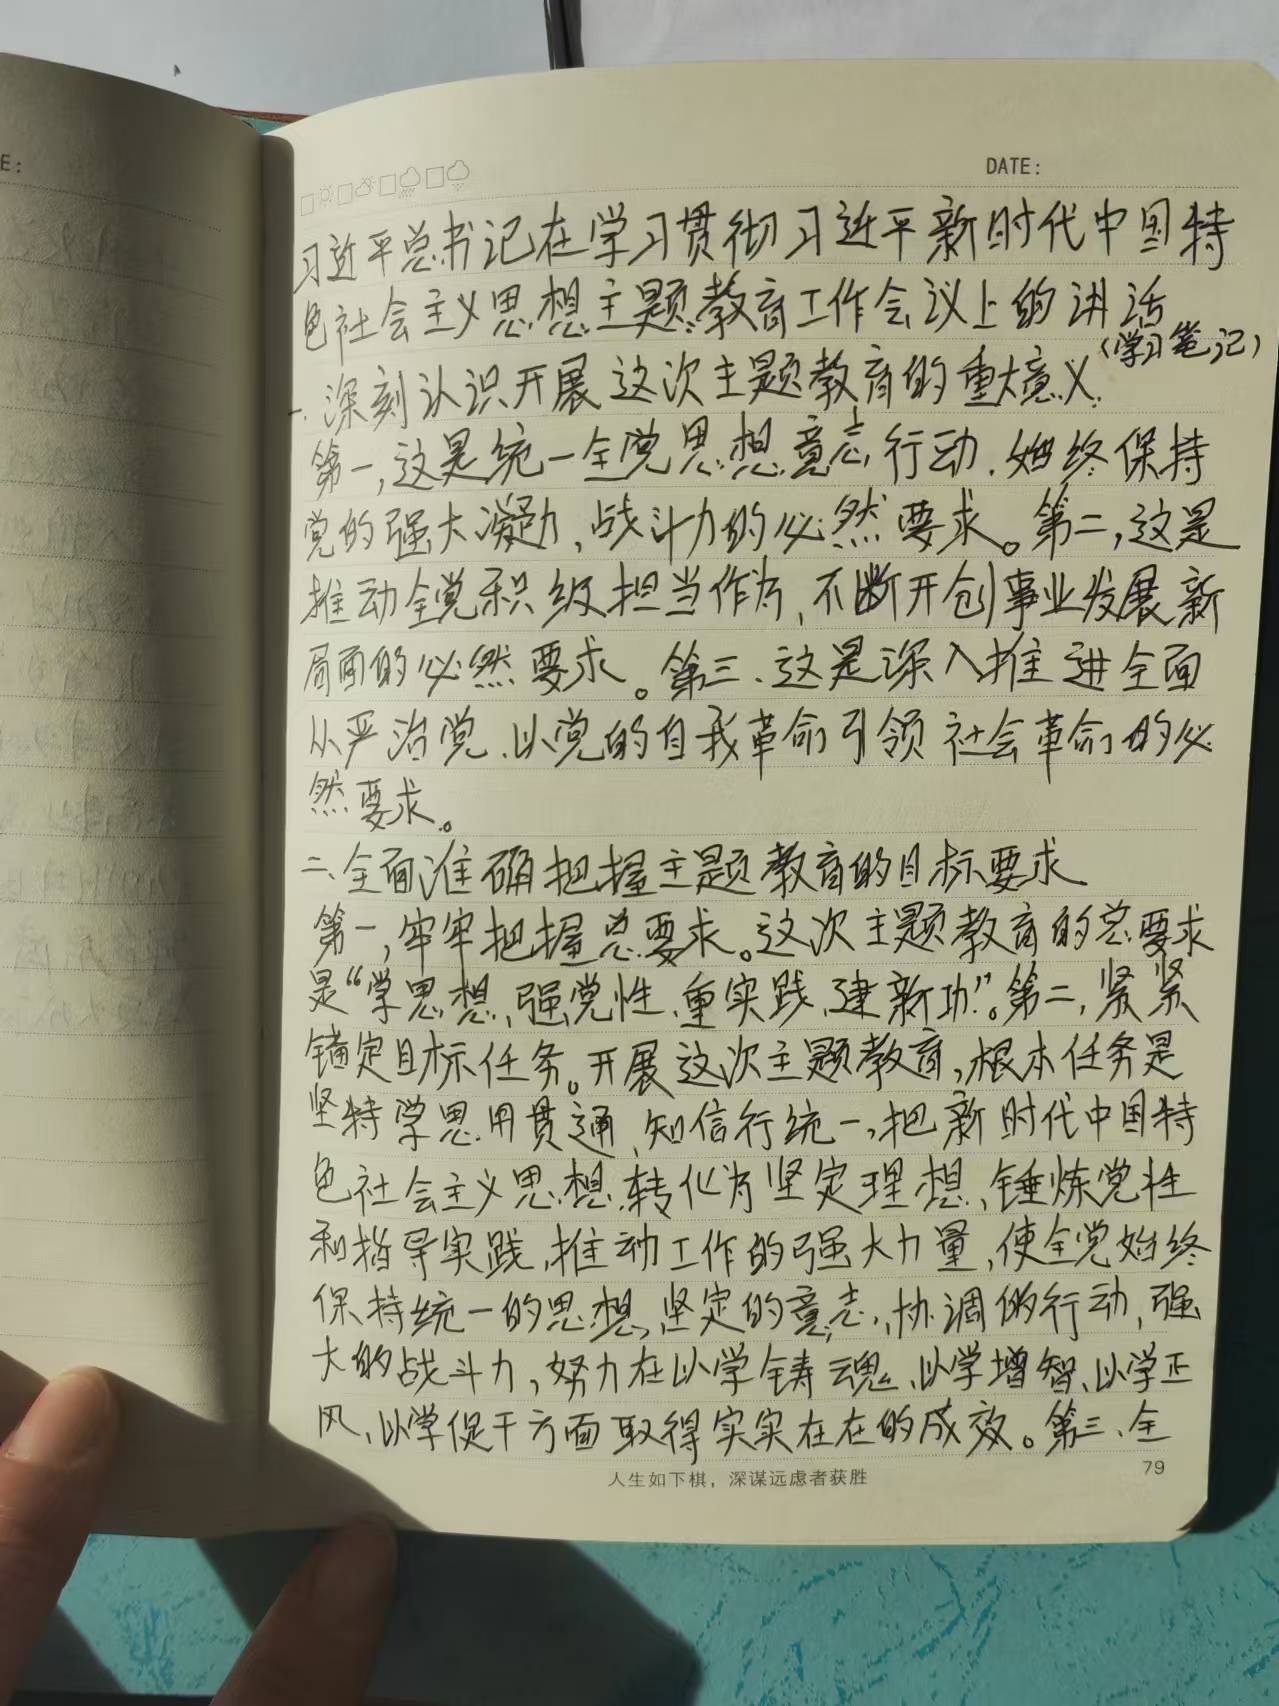 E:
DATE:
习近平总书记在学习贯彻习近平新时代中国特
色社会主义思想主题教育工作会议上的讲话
(学习笔记)
一.深刻认识开展这次主题教育的重大意义.
第一,这是统一全党思想意志行动.始终保持
党的强大凝力、战斗力的必然要求。第二,这是
推动全党积极担当作为、不断开创事业发展新
局面的必然要求。第三、这是深入推进全面
从严治党、以党的自我革命引领社会革命的必
然要求。
二、全面准确把握主题教育的目标要求
第一,牢牢把握总要求。这次主题教育的总要求
是“学思想、强党性、重实践、建新功”。第二,紧紧
锚定目标任务。开展这次主题教育,根本任务是
坚持学思用贯通、知信行统一,把新时代中国特
色社会主义思想转化为坚定理想、锤炼党性
和指导实践、推动工作的强大力量,使全党始终
保持统一的思想、坚定的意志、协调的行动、强
大的战斗力,努力在以学铸魂、以学增智、以学正
风、以学促干方面取得实实在在的成效。第三、全
人生如下棋，深谋远虑者获胜
79